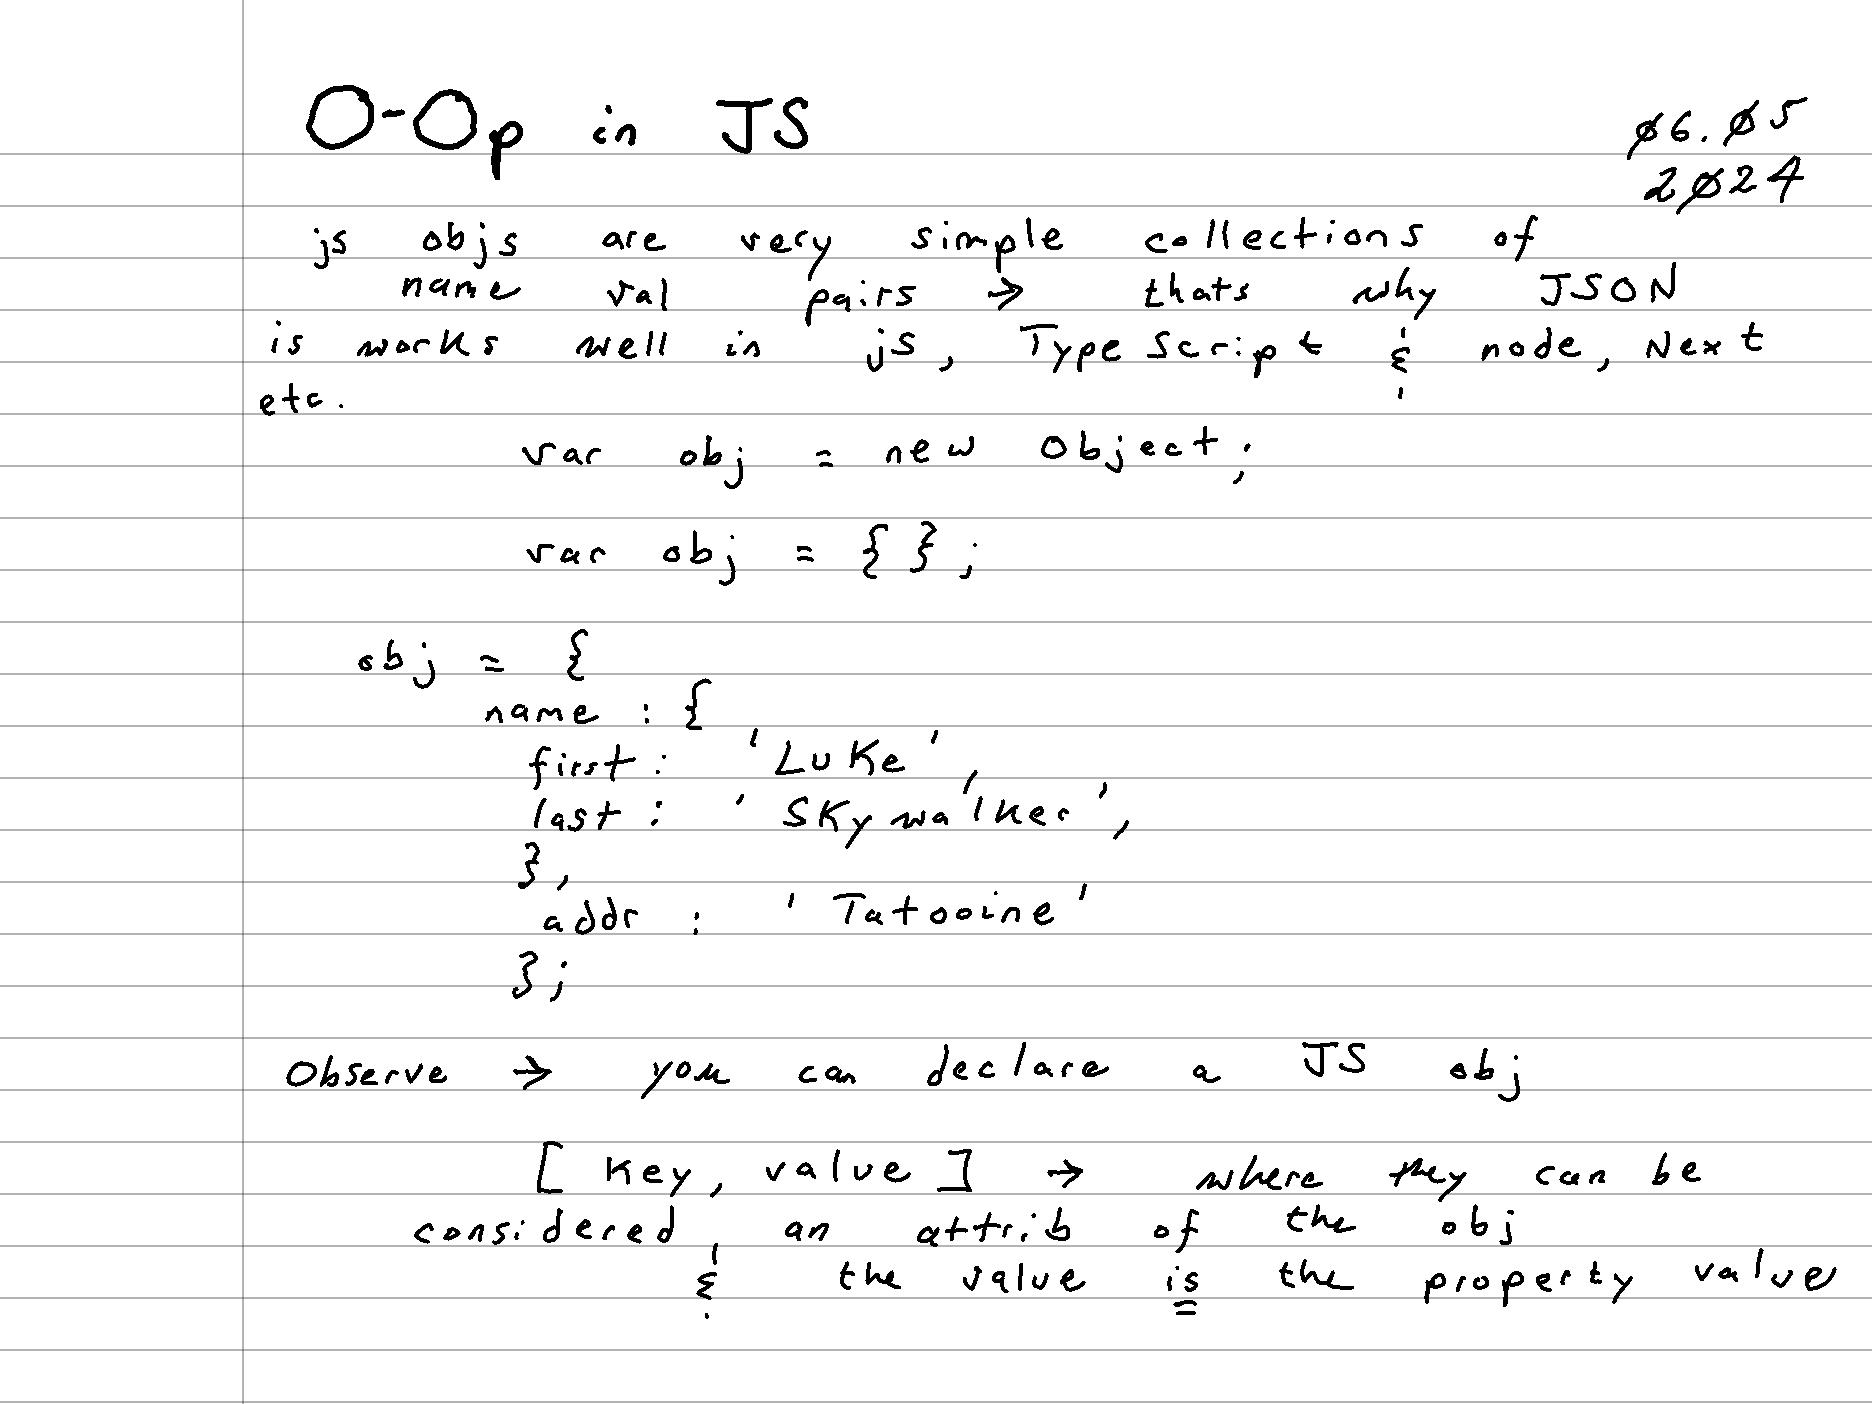 O-Op in JS
06.05
2024
js objs are very simple collections of
name val pairs → thats why JSON
is works well in js, TypeScript & node, Next
etc.
var obj = new Object;
var obj = { };
obj = {
name : {
first : 'Luke',
last : 'Skywalker',
},
addr : 'Tatooine'
};
Observe → you can declare a JS obj
[ Key, value ] → where they can be
considered, an attrib of the obj
& the value is the property value